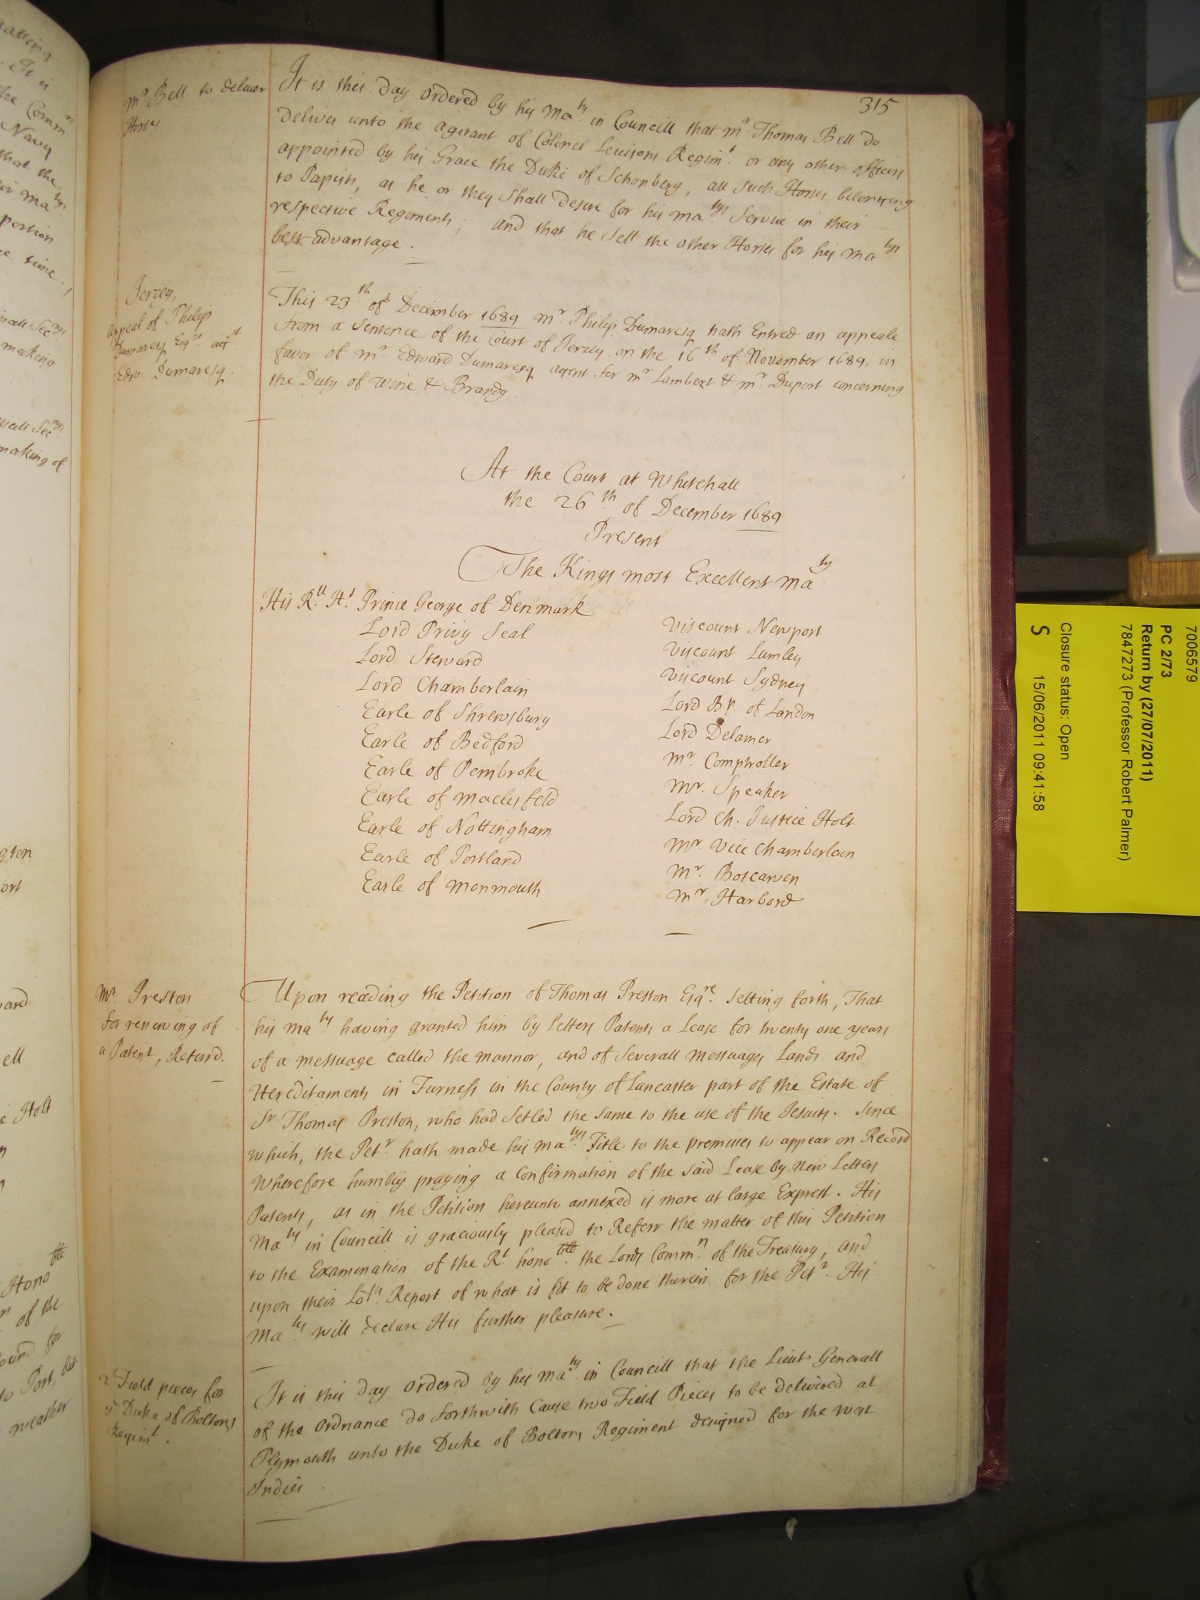 315
Mr. Bell to deliver
Horses
It is this day ordered by his Maty. in Councill that Mr. Thomas Bell do
deliver unto the agitant of Colonel Leuisons Regimt. or any other officers
appointed by his Grace the Duke of Schonberg, all such Horses, belonging
to Papists, as he or they shall desire for his Matys Service in their
respective Regiments; and that he sell the other Horses for his Matys
best advantage.
Jerzey,
appeal of Philip
Dumaresq Esqr. agst
Edw. Dumaresq.
This 23th of December 1689 Mr. Philip Dumaresq hath Entred an appeale
from a Sentence of the Court of Jerzey on the 16th of November 1689. in
favor of Mr. Edward Dumaresq agent for Mr. Lambert & Mr. Duport concerning
the Duty of Wine & Brandy.
At the Court at Whitehall
the 26th of December 1689
Present
The Kings most Excellent Maty
His Rll. Hs. Prince George of Denmark
Lord Privy Seal
Lord Steward
Lord Chamberlain
Earle of Shrewsbury
Earle of Bedford
Earle of Pembroke
Earle of Maclesfeld
Earle of Nottingham
Earle of Portland
Earle of Monmouth
Viscount Newport
Viscount Lumley
Viscount Sydney
Lord Bp. of London
Lord Delamer
Mr. Comptroller
Mr. Speaker
Lord Ch. Justice Holt
Mr. Vice Chamberlain
Mr. Boscawen
Mr. Harbord
Mr. Preston
for renewing of
a Patent, Referrd.
Upon reading the Petition of Thomas Preston Esqre. Setting forth, That
his Maty having granted him by Letters Patents a Lease for twenty one years
of a messuage called the mannor, and of Severall Messuages Lands and
Hereditaments in Furness in the County of Lancaster part of the Estate of
Sr. Thomas Preston, who had Setled the same to the use of the Jesuits. Since
which, the Petr. hath made his Matys Title to the premises to appear on Record
Wherefore humbly praying a Confirmation of the said Lease by New Letters
Patents, as in the Petition hereunto annexed is more at large Exprest. His
Maty in Councill is graciously pleased to Referr the matter of this Petition
to the Examination of the Rt. honoble. the Lords Commrs. of the Treasury, and
upon their Lops. Report of what is fit to be done therein for the Petr. His
Maty will declare His further pleasure.
2 Field pieces for
ye Duke of Boltons
Regimt.
It is this day ordered by his Maty in Councill that the Lieut Generall
of the Ordnance do forthwith Cause two Field Pieces to be delivered at
Plymouth unto the Duke of Boltons Regiment designed for the West
Indies.
7006579
PC 2/73
Return by (27/07/2011)
7847273 (Professor Robert Palmer)
Closure status: Open
S 15/06/2011 09:41:58